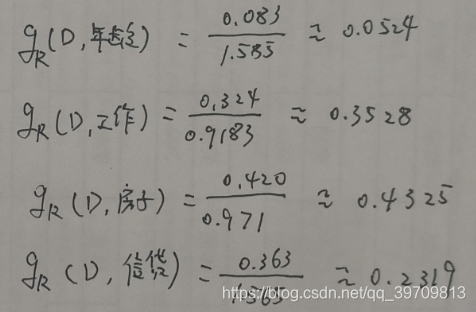 g_R(D,年龄) = 0.083 / 1.585 ≈ 0.0524
g_R(D,工作) = 0.324 / 0.9183 ≈ 0.3528
g_R(D,房子) = 0.420 / 0.971 ≈ 0.4325
g_R(D,信贷) = 0.363 / 1.565 ≈ 0.2319
https://blog.csdn.net/qq_39709813